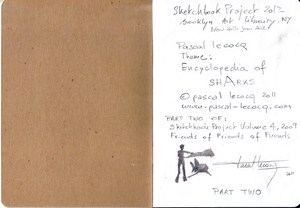 Sketchbook Project 2012
Brooklyn Art Library. NY
Nov 2011 - Jan 2012
Pascal Lecocq
Theme:
Encyclopedia of
SHARKS
© pascal lecocq 2011
www.pascal-lecocq.com
PART TWO OF:
Sketchbook Project Volume 4, 2009
Friends of Friends of Friends
2011
PART TWO